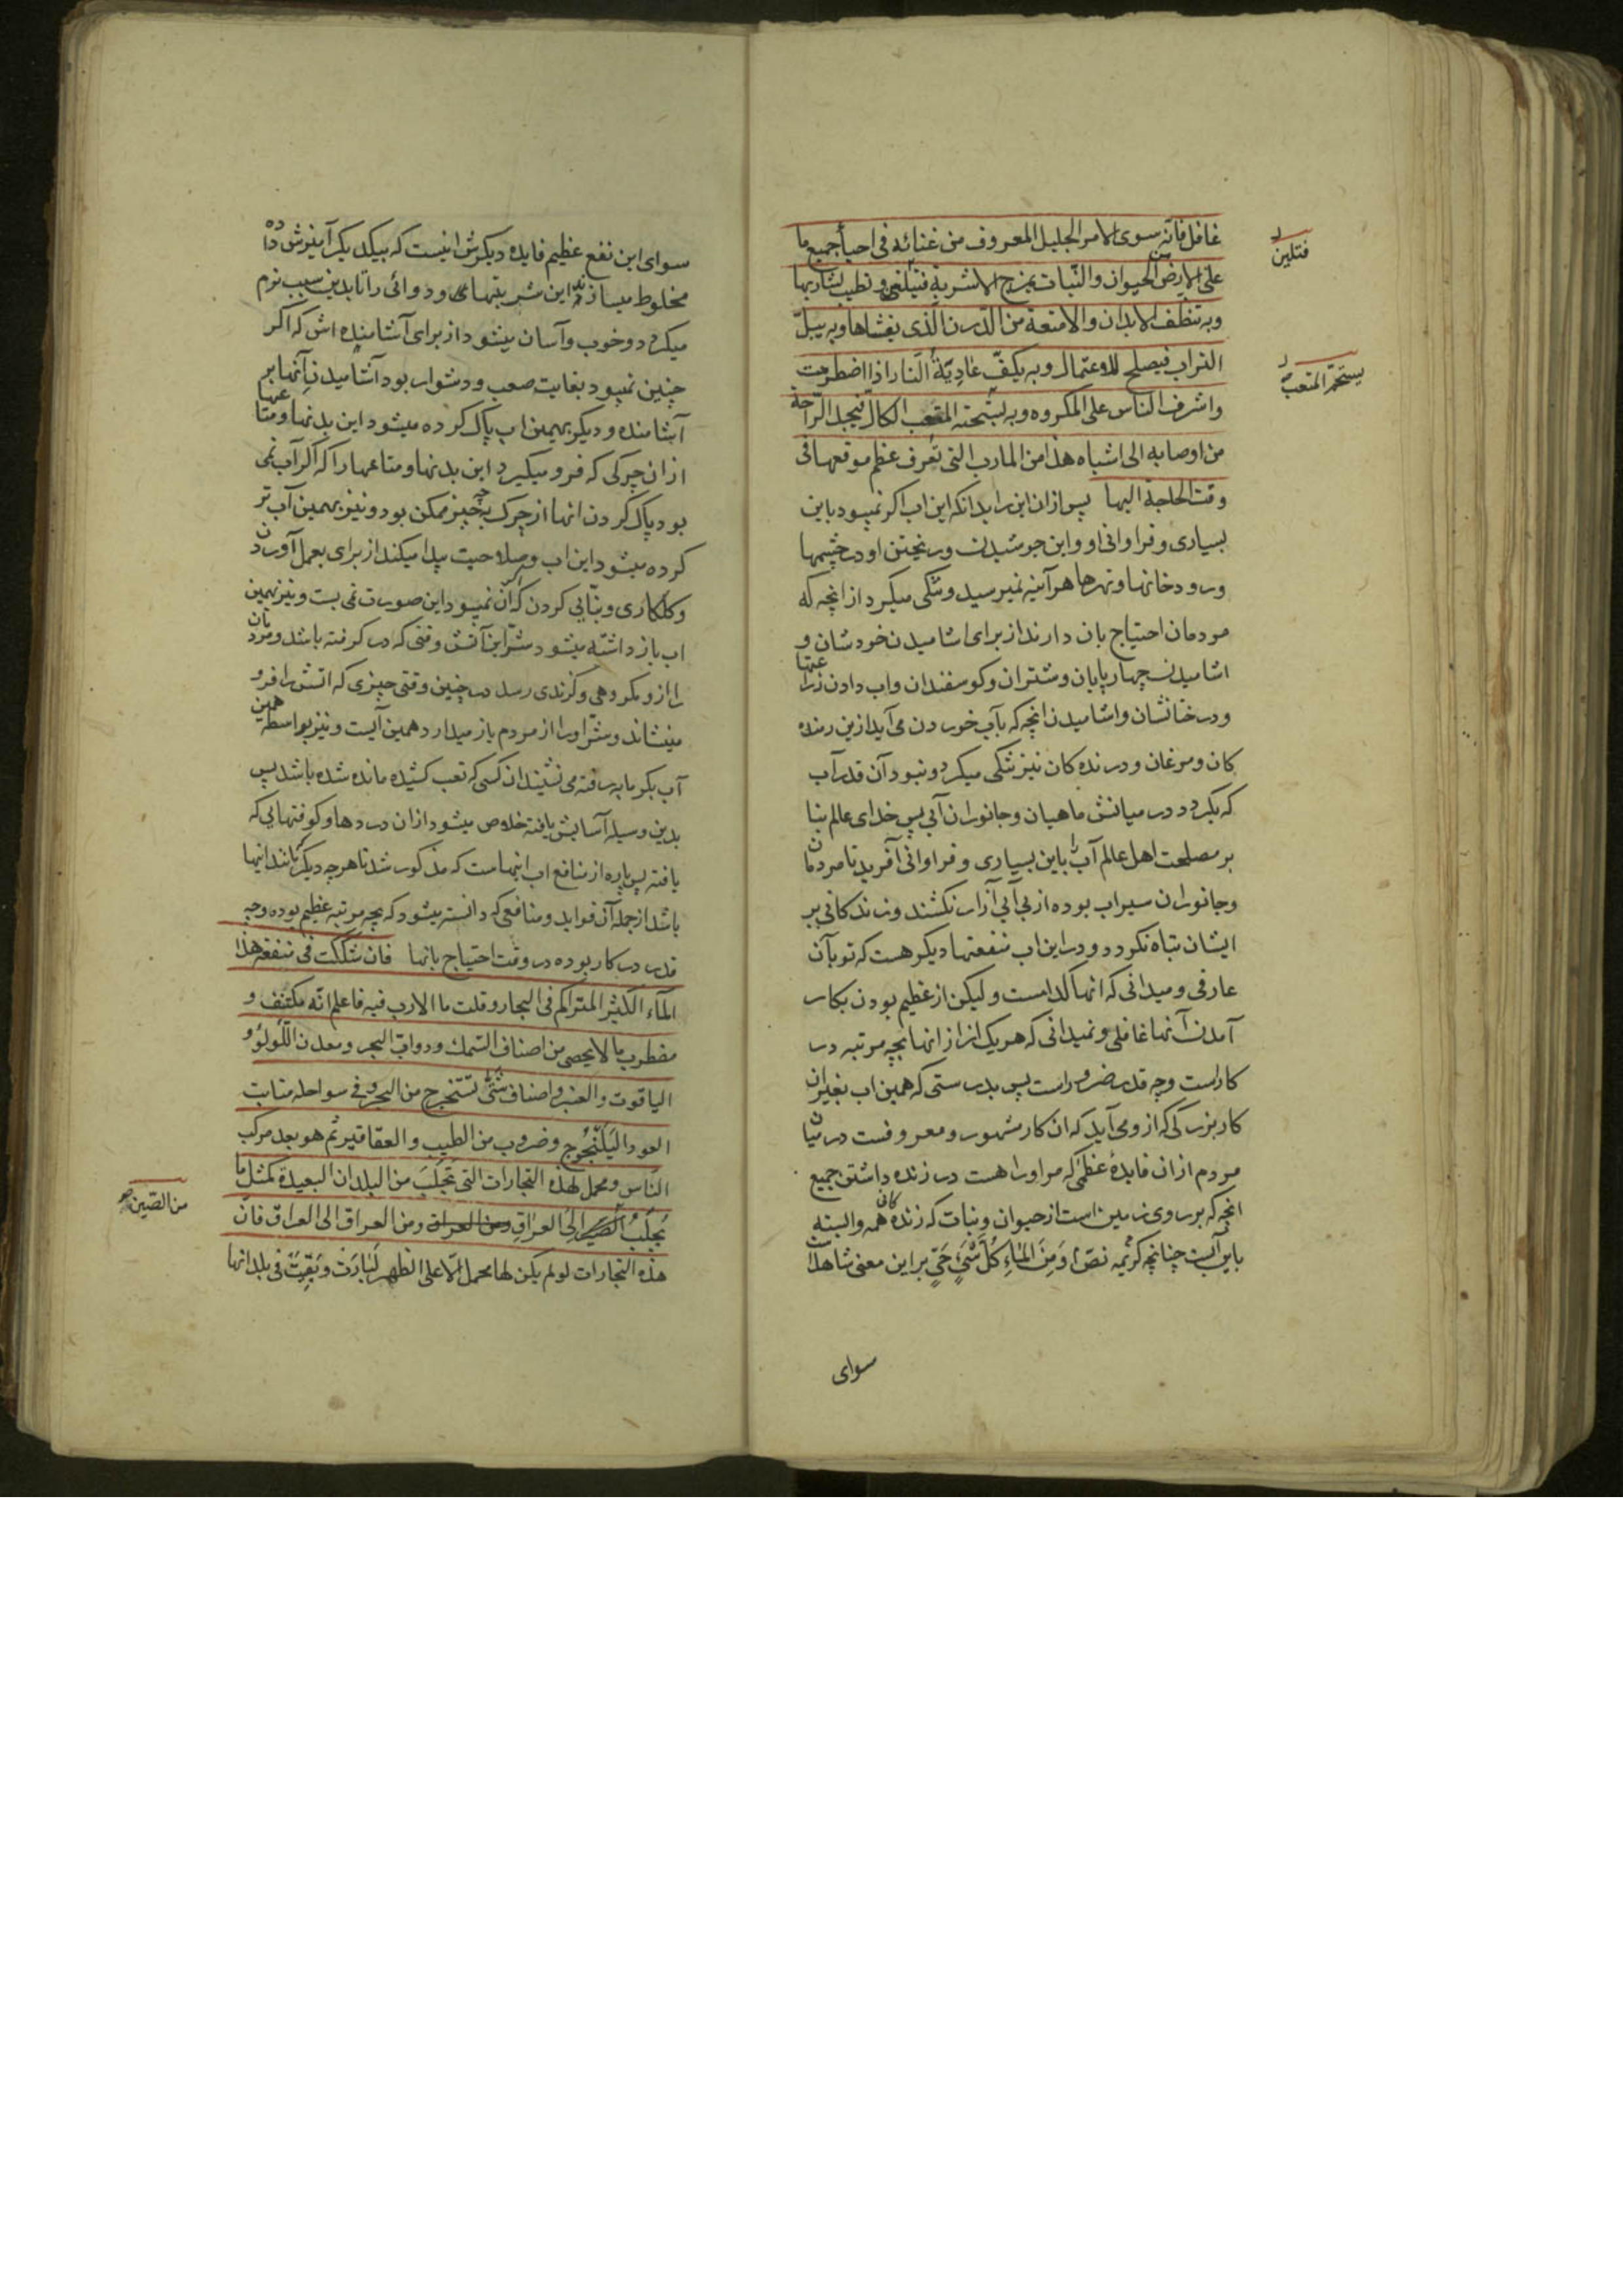 غافل فانه سوی الامر الجلیل المعروف من غنائه فی احیاء جمیع ما
علی الارض من الحیوان والنبات یمزج الاشربة فتلین و تطیب لشاربها
وبه تنظف الابدان والامتعة من الدرن الذی یغشاها وبه یبل
التراب فیصلح للاعتمال وبه یکف عادیة النار اذا اضطرمت
واشرف الناس علی المکروه وبه یستحم المتعب الکال فیجد الراحة
من اوصابه الی اشباه هذا من المارب التی تعرف عظم موقعها فی
وقت الحاجة الیها پس ازان این را بدانکه این اب اکر نمیبود باین
بسیاری و فراوانی او و این جوشیدن و ریختن او در چشمها
و رودخانها و نهرها هر آینه نمیرسید و تنکی میکرد از انچه که
مردمان احتیاج بان دارند از برای اشامیدن خودشان و
اشامیدن چهارپایان و شتران و کوسفندان و اب دادن زراعتها
و درختانشان و اشامیدن انچه که بآب خوردن می آید ازین رمنده
کان و مرغان و درنده کان نیز تنکی میکرد و نبود آن قدر آب
که بکردد در میانش ماهیان و جانوران آبی پس خدای عالم بنا
بر مصلحت اهل عالم آب را باین بسیاری و فراوانی آفرید تا مردمان
و جانوران سیراب بوده از بی آبی آزار نکشند و زندکانی بر
ایشان تباه نکردد و در این اب منفعتها دیکر هست که تو بآن
عارفی و میدانی که انها کدامست و لیکن از عظیم بودن بکار
آمدن آنها غافلی و نمیدانی که هر یک از انها بچه مرتبه در
کار است و چه قدر ضرور است پس بدرستی که همین اب بغیر ان
کار بزرکی که ازو می آید که ان کار مشهور و معروفست در میان
مردم ازان فایدهٔ عظمی که مر او را هست در زنده داشتن جمیع
انچه که بر روی زمین است از حیوان و نبات که زنده کانی همه وابسته
باین آبست چنانچه کریمه نص و من الماء کل شیء حی بر این معنی شاهد است
سوای
فتلین
یستحم المتعب
سوای این نفع عظیم فایده دیکرش اینست که بیکدیکر آمیزش داده
مخلوط میسازند این شربتهای و دوائی را تا بدین سبب نرم
میکردد و خوب و آسان میشود از برای آشامنده اش که اکر
چنین نمیبود بغایت صعب و دشوار بود آشامیدن آنها بر
آشامنده و دیکر بهمین اب پاک کرده میشود این بدنها و متاعها
ازان چرکی که فرو میکیرد این بدنها و متاعها را که اکر آب نمی
بود پاک کردن انها از چرک بچه چیز ممکن بود و نیز بهمین آب تر
کرده میشود این اب و صلاحیت پیدا میکند از برای بعمل آوردن
و کلکاری و بنایی کردن که اکر آن نمیبود این صورت نمی بست و نیز بهمین
اب باز داشته میشود شر این آتش وقتی که در کرفته باشد و مردمان
را ازو مکروهی و کزندی رسد در چنین وقتی چیزی که اتش را فرو
مینشاند و شر او را از مردم باز میدارد همین آبست و نیز بواسطه همین
آب بکرمابه رفته می نشیند ان کسی که تعب کشیده مانده شده باشد پس
بدین وسیله آسایش یافته خلاص میشود ازان دردها و کوفتهایی که
یافته پس پاره از منافع اب اینهاست که مذکور شد تا هر چه دیکر مانند اینها
باشد از جمله آن فواید و منافعی که دانسته میشود که بچه مرتبه عظیم بوده و چه
قدر در کار بوده در وقت احتیاج بانها فان شککت فی منفعة هذا
الماء الکثیر المتراکم فی البحار وقلت ما الارب فیه فاعلم انه مکتنف و
مضطرب ما لا یحصی من اصناف السمک ودواب البحر ومعدن اللؤلؤ و
الیاقوت والعنبر واصناف شتی تستخرج من البحر وفی سواحله منابت
العود الیلنجوج وضروب من الطیب والعقاقیر ثم هو بعد مرکب
الناس ومحمل لهذه التجارات التی تجلب من البلدان البعیدة کمثل ما
یجلب الی العراق ومن العراق ومن العراق الی العراق فان
هذه التجارات لو لم یکن لها محمل الا علی الظهر لبارت وبقیت فی بلدانها
من الصین